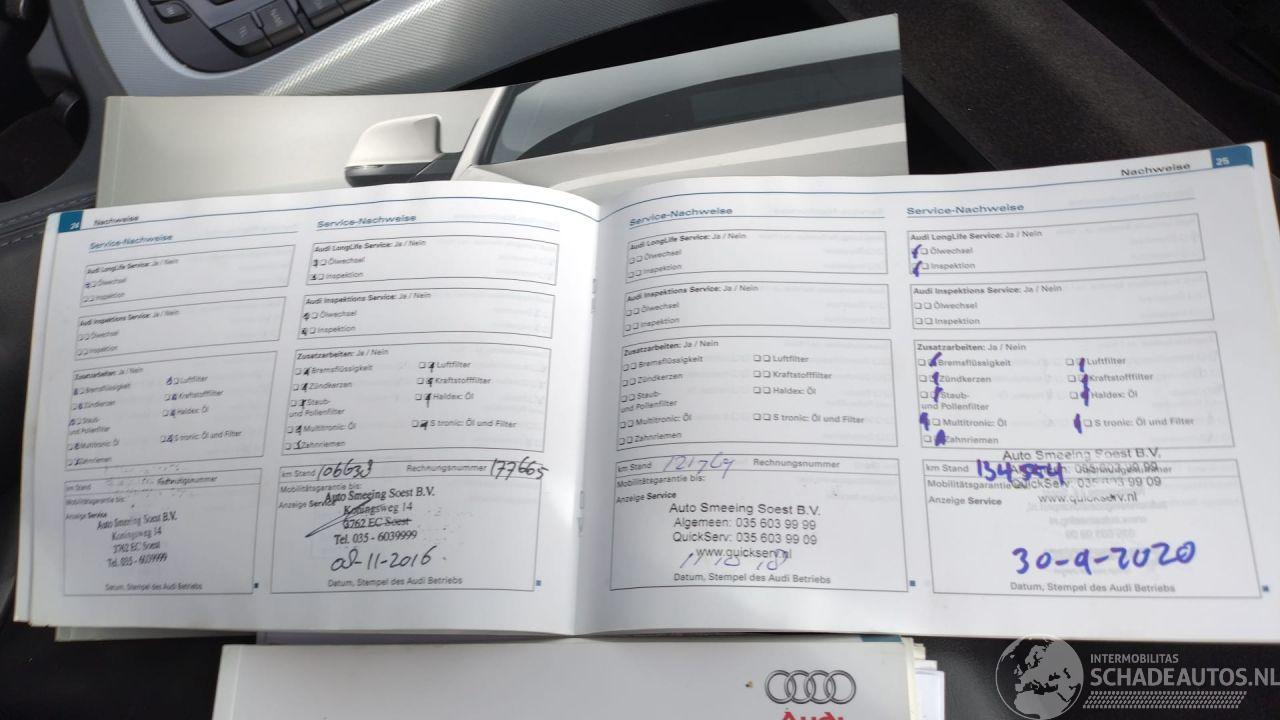 24 Nachweise
Service-Nachweise
Audi LongLife Service: Ja / Nein
Ölwechsel
Inspektion
Audi Inspektions Service: Ja / Nein
Ölwechsel
Inspektion
Zusatzarbeiten: Ja / Nein
Bremsflüssigkeit Luftfilter
Zündkerzen Kraftstofffilter
Staub- Haldex: Öl
und Pollenfilter
Multitronic: Öl S tronic: Öl und Filter
Zahnriemen
km Stand Rechnungsnummer
Mobilitätsgarantie bis:
Anzeige Service
Auto Smeeing Soest B.V.
Koningsweg 14
3762 EC Soest
Tel. 035 - 6039999
Datum, Stempel des Audi Betriebs
Service-Nachweise
Audi LongLife Service: Ja / Nein
Ölwechsel
Inspektion
Audi Inspektions Service: Ja / Nein
Ölwechsel
Inspektion
Zusatzarbeiten: Ja / Nein
Bremsflüssigkeit Luftfilter
Zündkerzen Kraftstofffilter
Staub- Haldex: Öl
und Pollenfilter
Multitronic: Öl S tronic: Öl und Filter
Zahnriemen
km Stand 106633 Rechnungsnummer 177665
Mobilitätsgarantie bis:
Anzeige Service
Auto Smeeing Soest B.V.
Koningsweg 14
3762 EC Soest
Tel. 035 - 6039999
08-11-2016
Datum, Stempel des Audi Betriebs
Service-Nachweise
Audi LongLife Service: Ja / Nein
Ölwechsel
Inspektion
Audi Inspektions Service: Ja / Nein
Ölwechsel
Inspektion
Zusatzarbeiten: Ja / Nein
Bremsflüssigkeit Luftfilter
Zündkerzen Kraftstofffilter
Staub- Haldex: Öl
und Pollenfilter
Multitronic: Öl S tronic: Öl und Filter
Zahnriemen
km Stand Rechnungsnummer
Mobilitätsgarantie bis:
Anzeige Service
Auto Smeeing Soest B.V.
Algemeen: 035 603 99 99
QuickServ: 035 603 99 09
www.quickserv.nl
Datum, Stempel des Audi Betriebs
Nachweise 25
Service-Nachweise
Audi LongLife Service: Ja / Nein
Ölwechsel
Inspektion
Audi Inspektions Service: Ja / Nein
Ölwechsel
Inspektion
Zusatzarbeiten: Ja / Nein
Bremsflüssigkeit Luftfilter
Zündkerzen Kraftstofffilter
Staub- Haldex: Öl
und Pollenfilter
Multitronic: Öl S tronic: Öl und Filter
Zahnriemen
Auto Smeeing Soest B.V.
km Stand 134554
Mobilitätsgarantie
QuickServ: 035 603 99 09
Anzeige Service
www.quickserv.nl
30-9-2020
Datum, Stempel des Audi Betriebs
Audi
INTERMOBILITAS
SCHADEAUTOS.NL